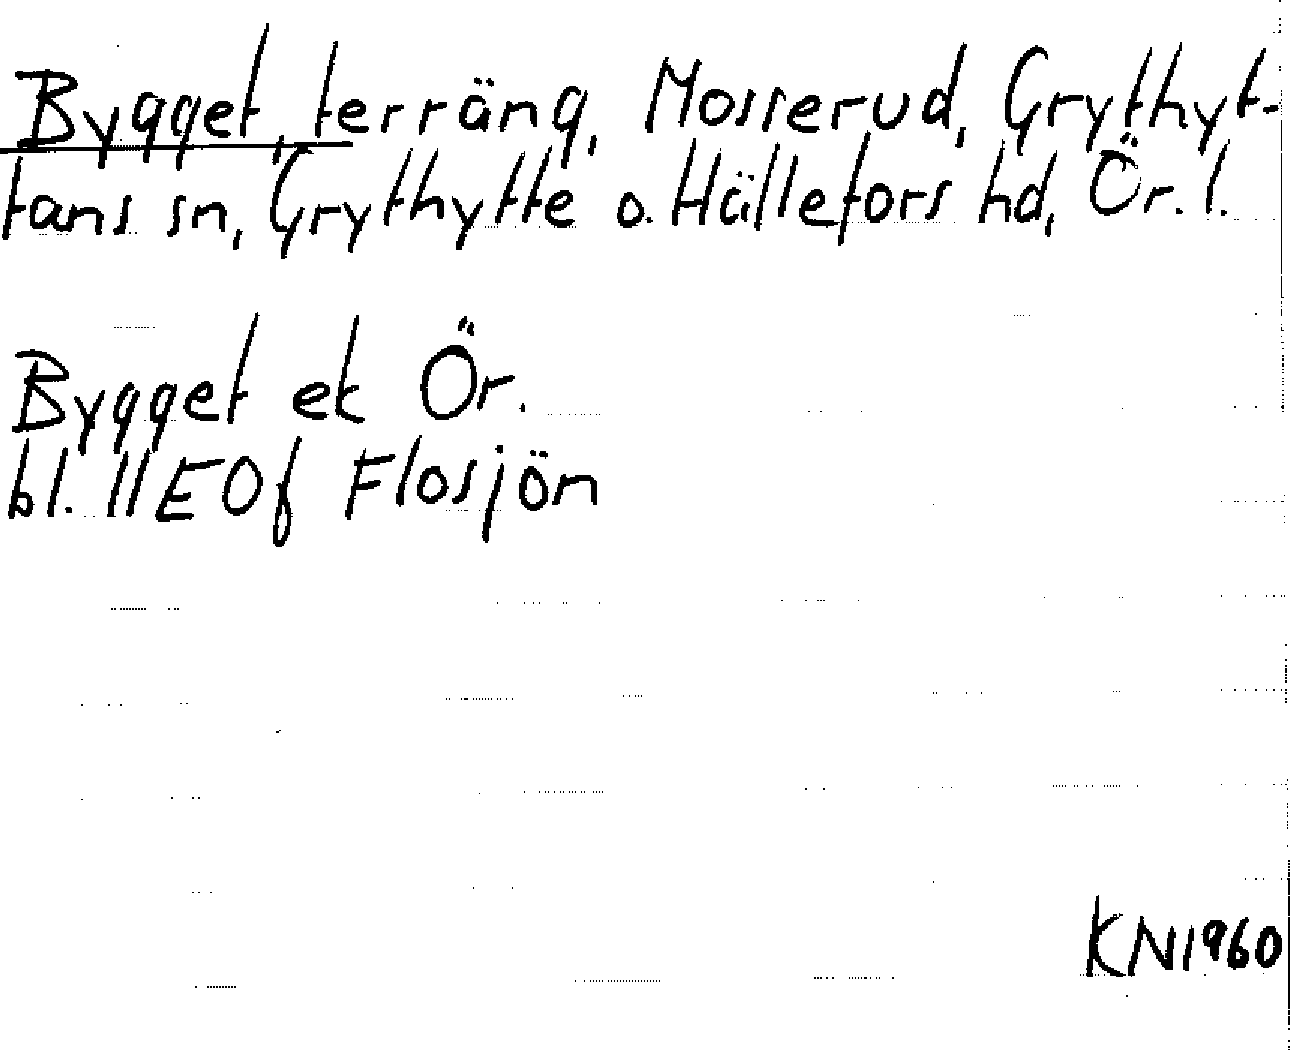 Bygget, terräng, Mosserud, Grythyt-
tans sn, Grythytte o. Hällefors hd, Ör. l.
Bygget ek Ör.
bl. 11E0f Flosjön
KN1960